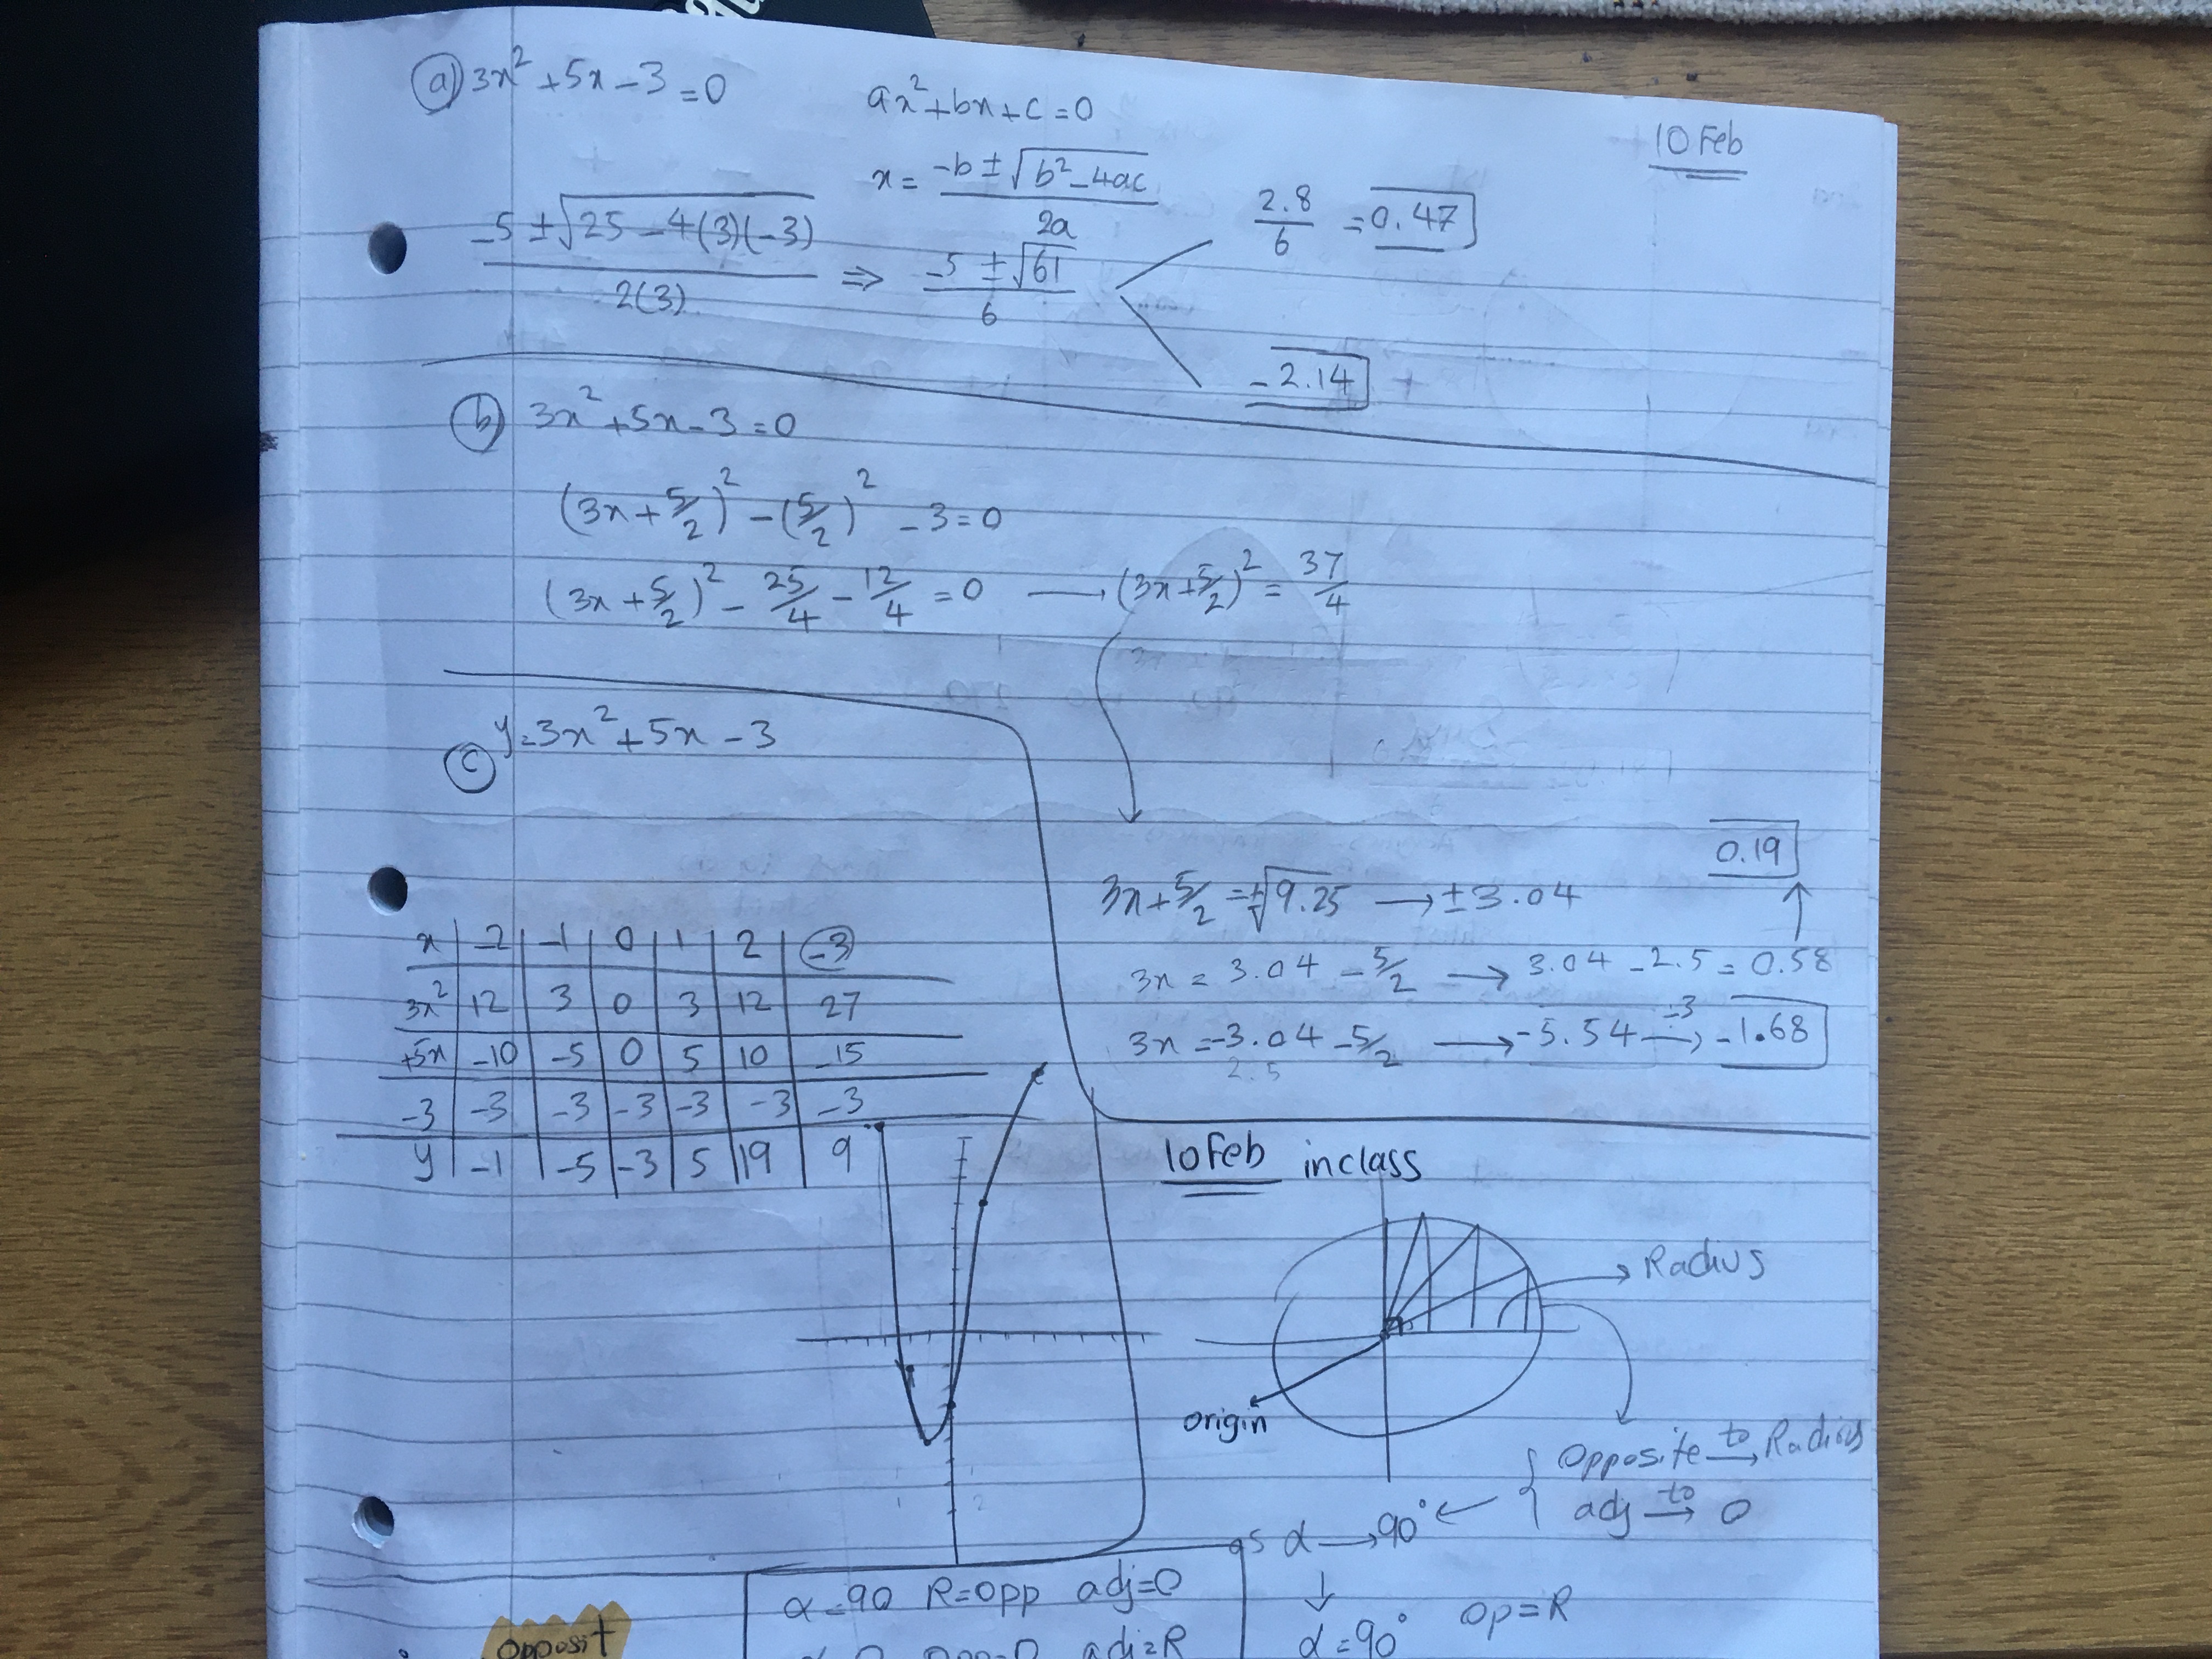 10 Feb
(a) 3x² + 5x - 3 = 0
ax² + bx + c = 0
x = (-b ± √(b² - 4ac)) / 2a
(-5 ± √(25 - 4(3)(-3))) / 2(3) ⇒ (-5 ± √61) / 6
2.8/6 = 0.47
-2.14
(b) 3x² + 5x - 3 = 0
(3x + 5/2)² - (5/2)² - 3 = 0
(3x + 5/2)² - 25/4 - 12/4 = 0 → (3x + 5/2)² = 37/4
3x + 5/2 = ±√9.25 → ±3.04
3x = 3.04 - 5/2 → 3.04 - 2.5 = 0.58
0.19
3x = -3.04 - 5/2 → -5.54 ÷3 → -1.68
2.5
(c) y = 3x² + 5x - 3
x | -2 | -1 | 0 | 1 | 2 | -3
3x² | 12 | 3 | 0 | 3 | 12 | 27
+5x | -10 | -5 | 0 | 5 | 10 | -15
-3 | -3 | -3 | -3 | -3 | -3 | -3
y | -1 | -5 | -3 | 5 | 19 | 9
10 Feb in class
Radius
origin
Opposite to → Radius
adj to → 0
as α → 90°
α = 90 R = opp adj = 0
adj = R
↓
α = 90° op = R
opposit